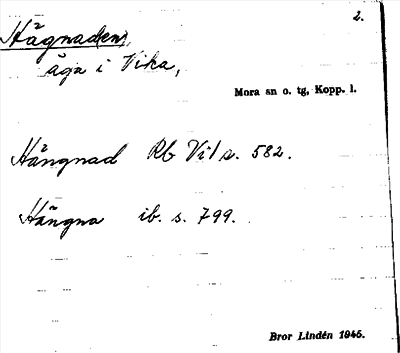 2.
Hågnad(en),
äga i Vika,
Mora sn o. tg, Kopp. l.
Hångnad Rb Vi/s. 582.
Hångna ib. s. 799.
Bror Lindén 1945.